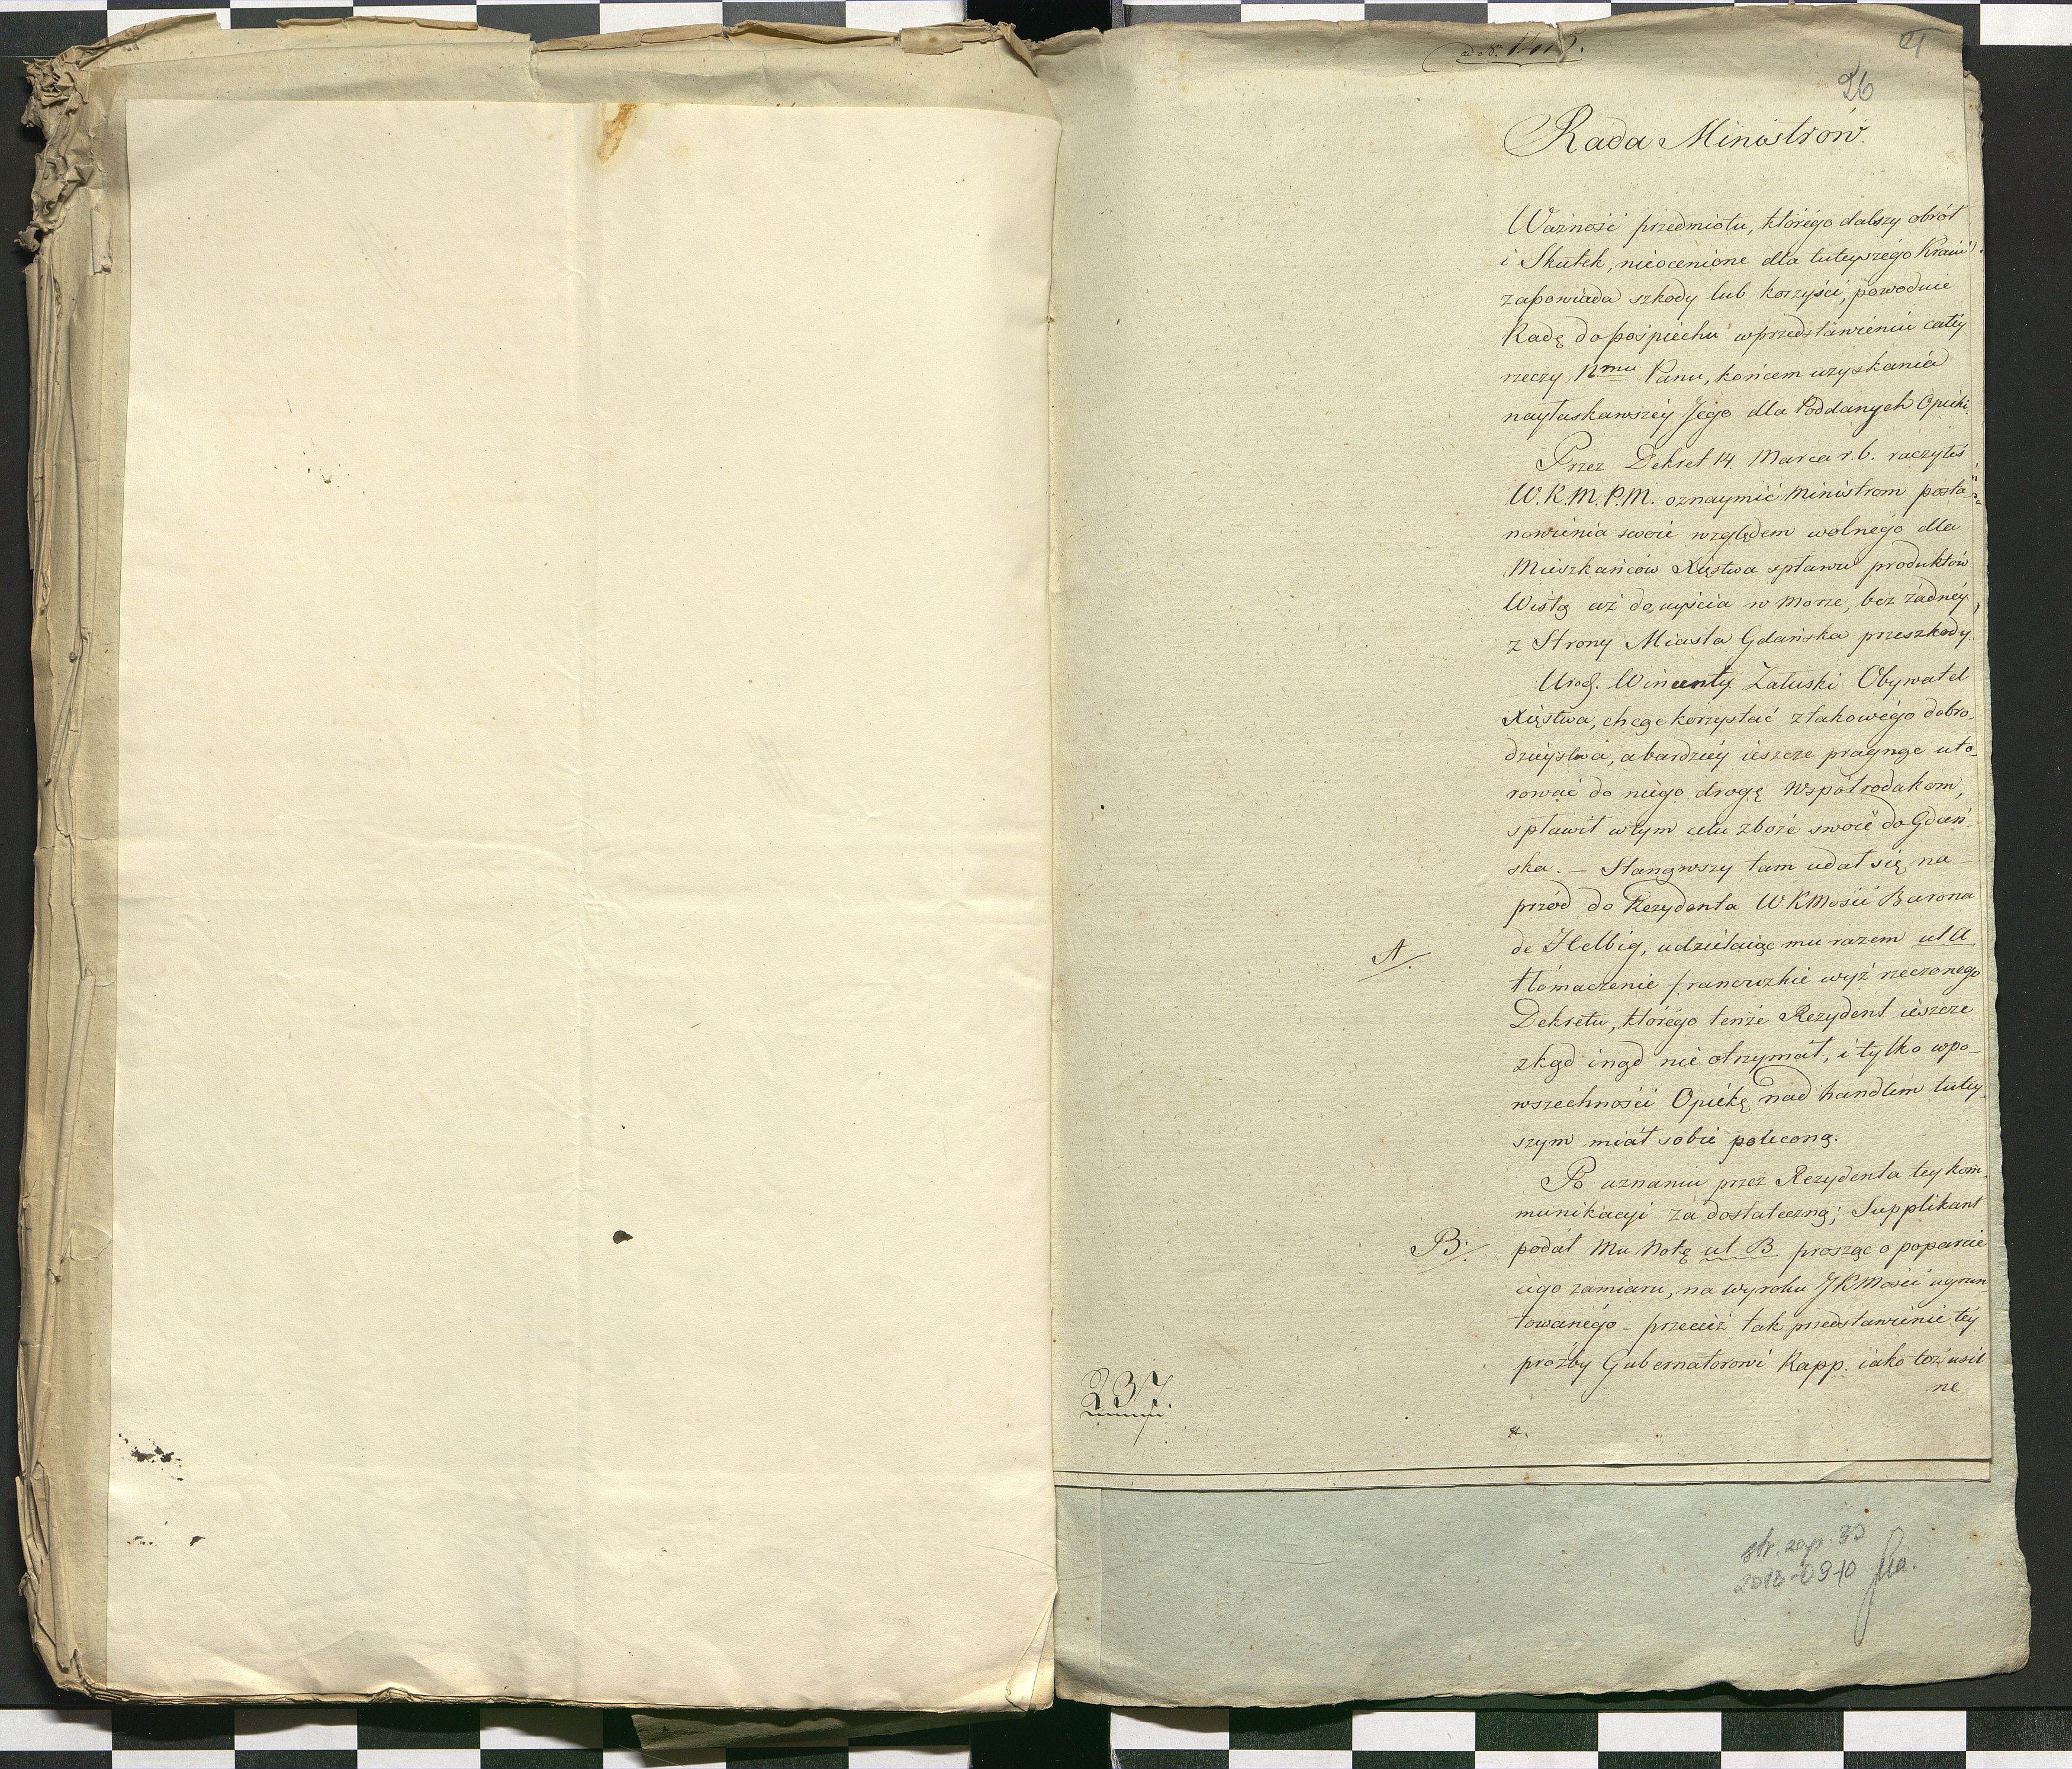 ad Nr. 1617.
21
26
Rada Ministrów.
Ważność przedmiotu, którego dalszy obrót
i Skutek, nieocenione dla tuteyszégo Kraiu
zapowiada szkody lub korzyści, powoduie
Radę do pośpiechu w przedstawieniu całéy
rzeczy Nmu Panu, końcem uzyskania
nayłaskawszéy Jego dla Poddanych Opieki.
Przez Dekret 14. Marca r. b. raczyłeś
W.K.M.P.M. oznaymić Ministrom posta-
nowienia swoie względem wolnego dla
Mieszkańców Xięstwa spławu produktów
Wisłą aż do uyścia w Morze, bez żadnéy
z Strony Miasta Gdańska przeszkody.
Urodz. Wincenty Załuski Obywatel
Xięstwa, chcąc korzystać z takowégo dobro-
dzieystwa, a bardziéy ieszcze pragnąc uto-
rować do niégo drogę Współrodakom,
spławił w tym celu zboże swoie do Gdań-
ska. – Stanąwszy tam udał się na-
przód do Rezydenta WKMości Barona
A/.
de Helbig, udzielaiąc mu razem ut A
tłómaczenie francuzkie wyż rzeczonego
Dekretu, którégo tenże Rezydent ieszcze
zkąd inąd nie otrzymał, i tylko w po-
wszechności Opiekę nad handlem tutey-
szym miał sobie poleconą.
Po uznaniu przez Rezydenta tey kom-
munikacyi za dostateczną; Supplikant
B/.
podał Mu Notę ut B prosząc o poparcie
iégo zamiaru, na wyroku JKMości ugrun-
towanégo – przecież tak przedstawienie téy
proźby Gubernatorowi Rapp. iako też usil
ne
237.
str. zap. 30
2013-09-10